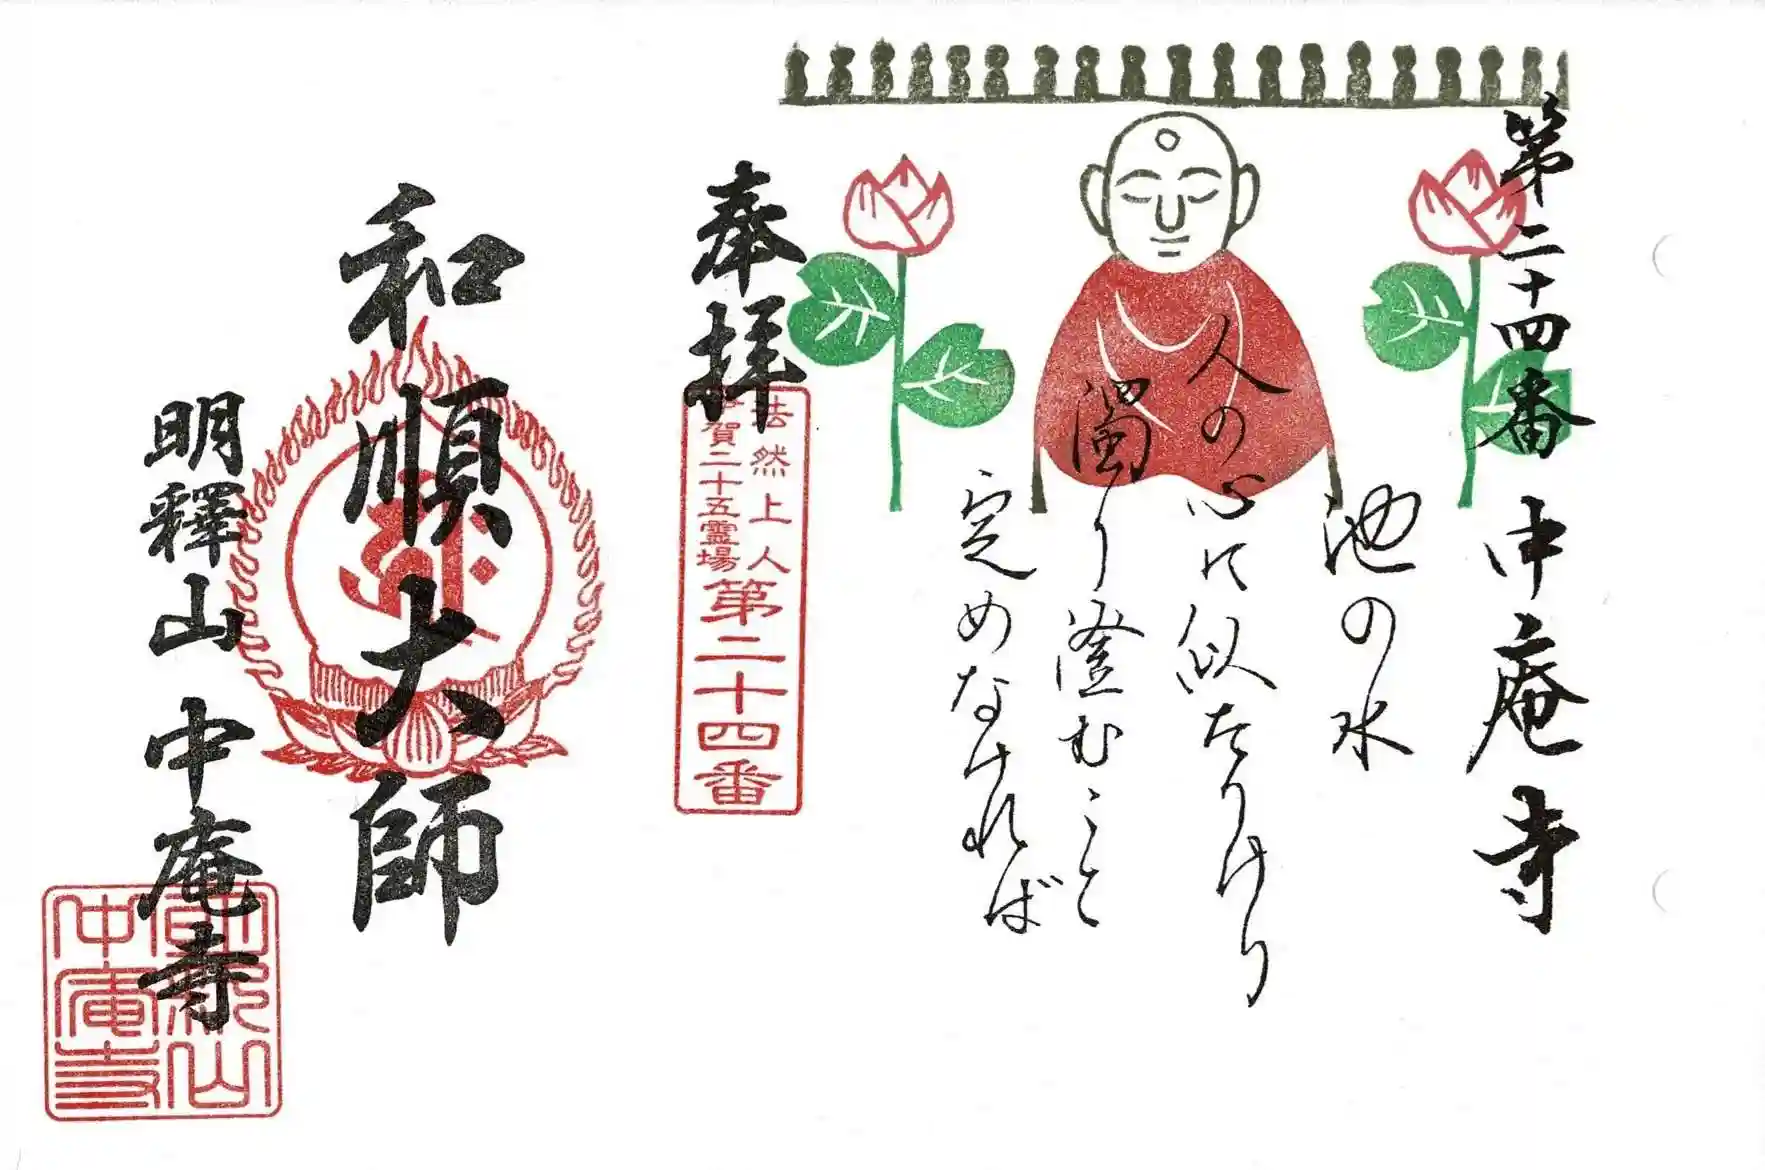 第二十四番 中庵寺
池の水
人の心に似たりけり
濁り澄むこと
定めなければ
奉拝
法然上人
伊賀二十五霊場
第二十四番
和順大師
明釋山 中庵寺
明釋山
中庵寺